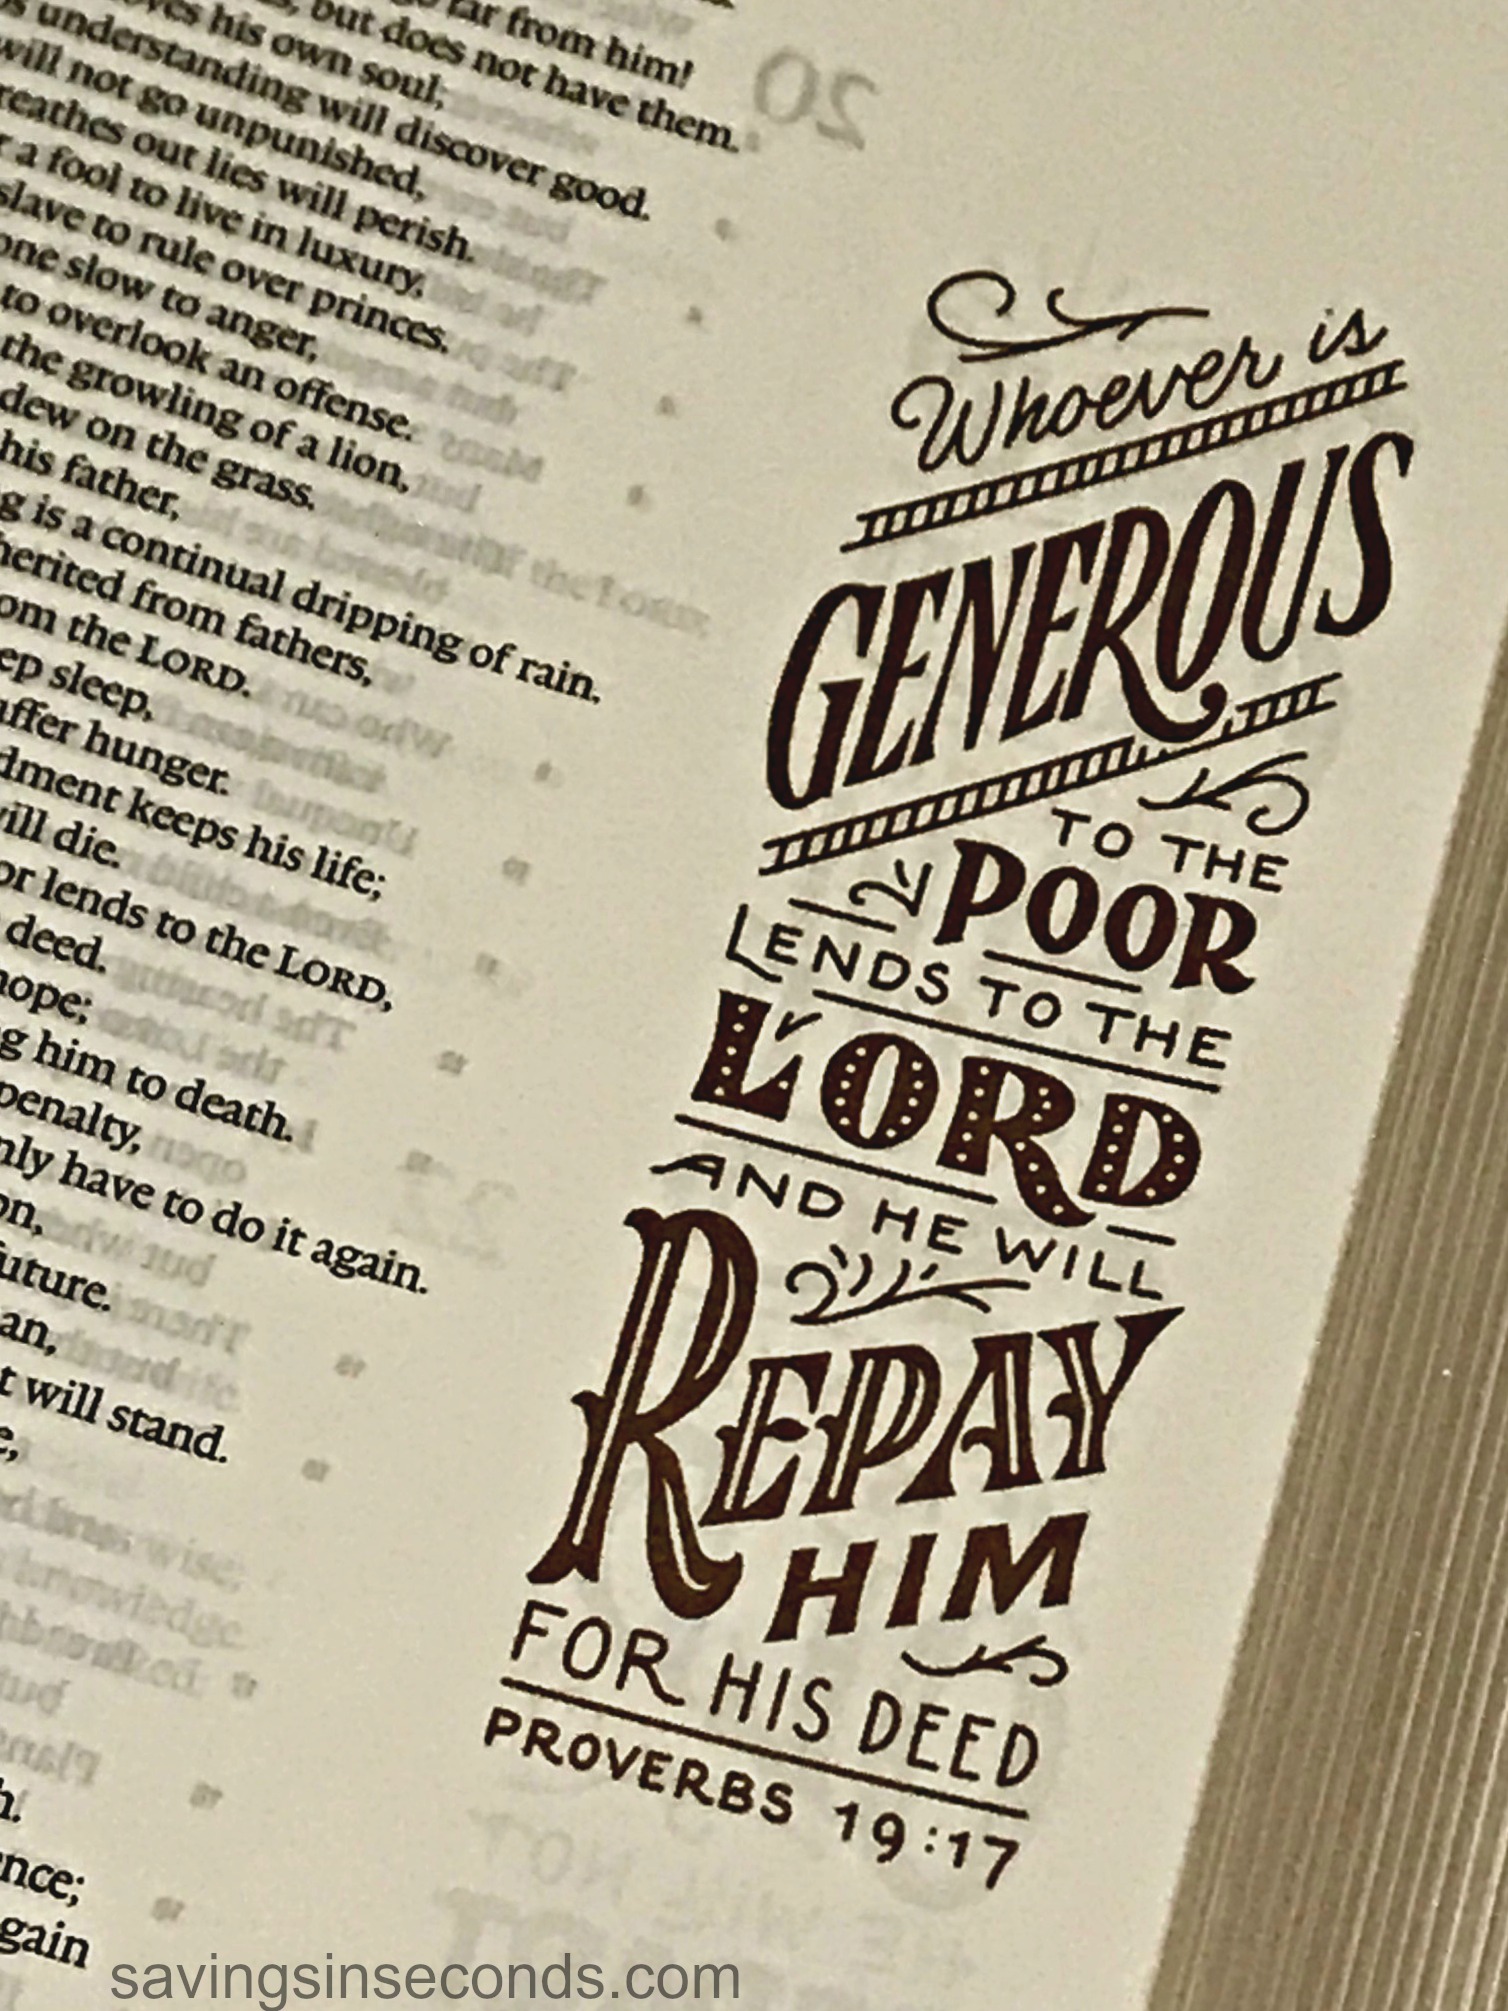 far from him!
but does not have them.
his own soul;
understanding will discover good.
will not go unpunished,
breathes out lies will perish.
a fool to live in luxury,
slave to rule over princes.
one slow to anger,
to overlook an offense.
the growling of a lion,
dew on the grass.
his father,
is a continual dripping of rain.
from fathers,
the LORD.
sleep,
hunger.
keeps his life;
will die.
lends to the LORD,
deed.
hope;
him to death.
penalty,
have to do it again.
future.
will stand.
Whoever is
GENEROUS
TO THE
POOR
LENDS TO THE
LORD
AND HE WILL
REPAY
HIM
FOR HIS DEED
PROVERBS 19:17
savingsinseconds.com